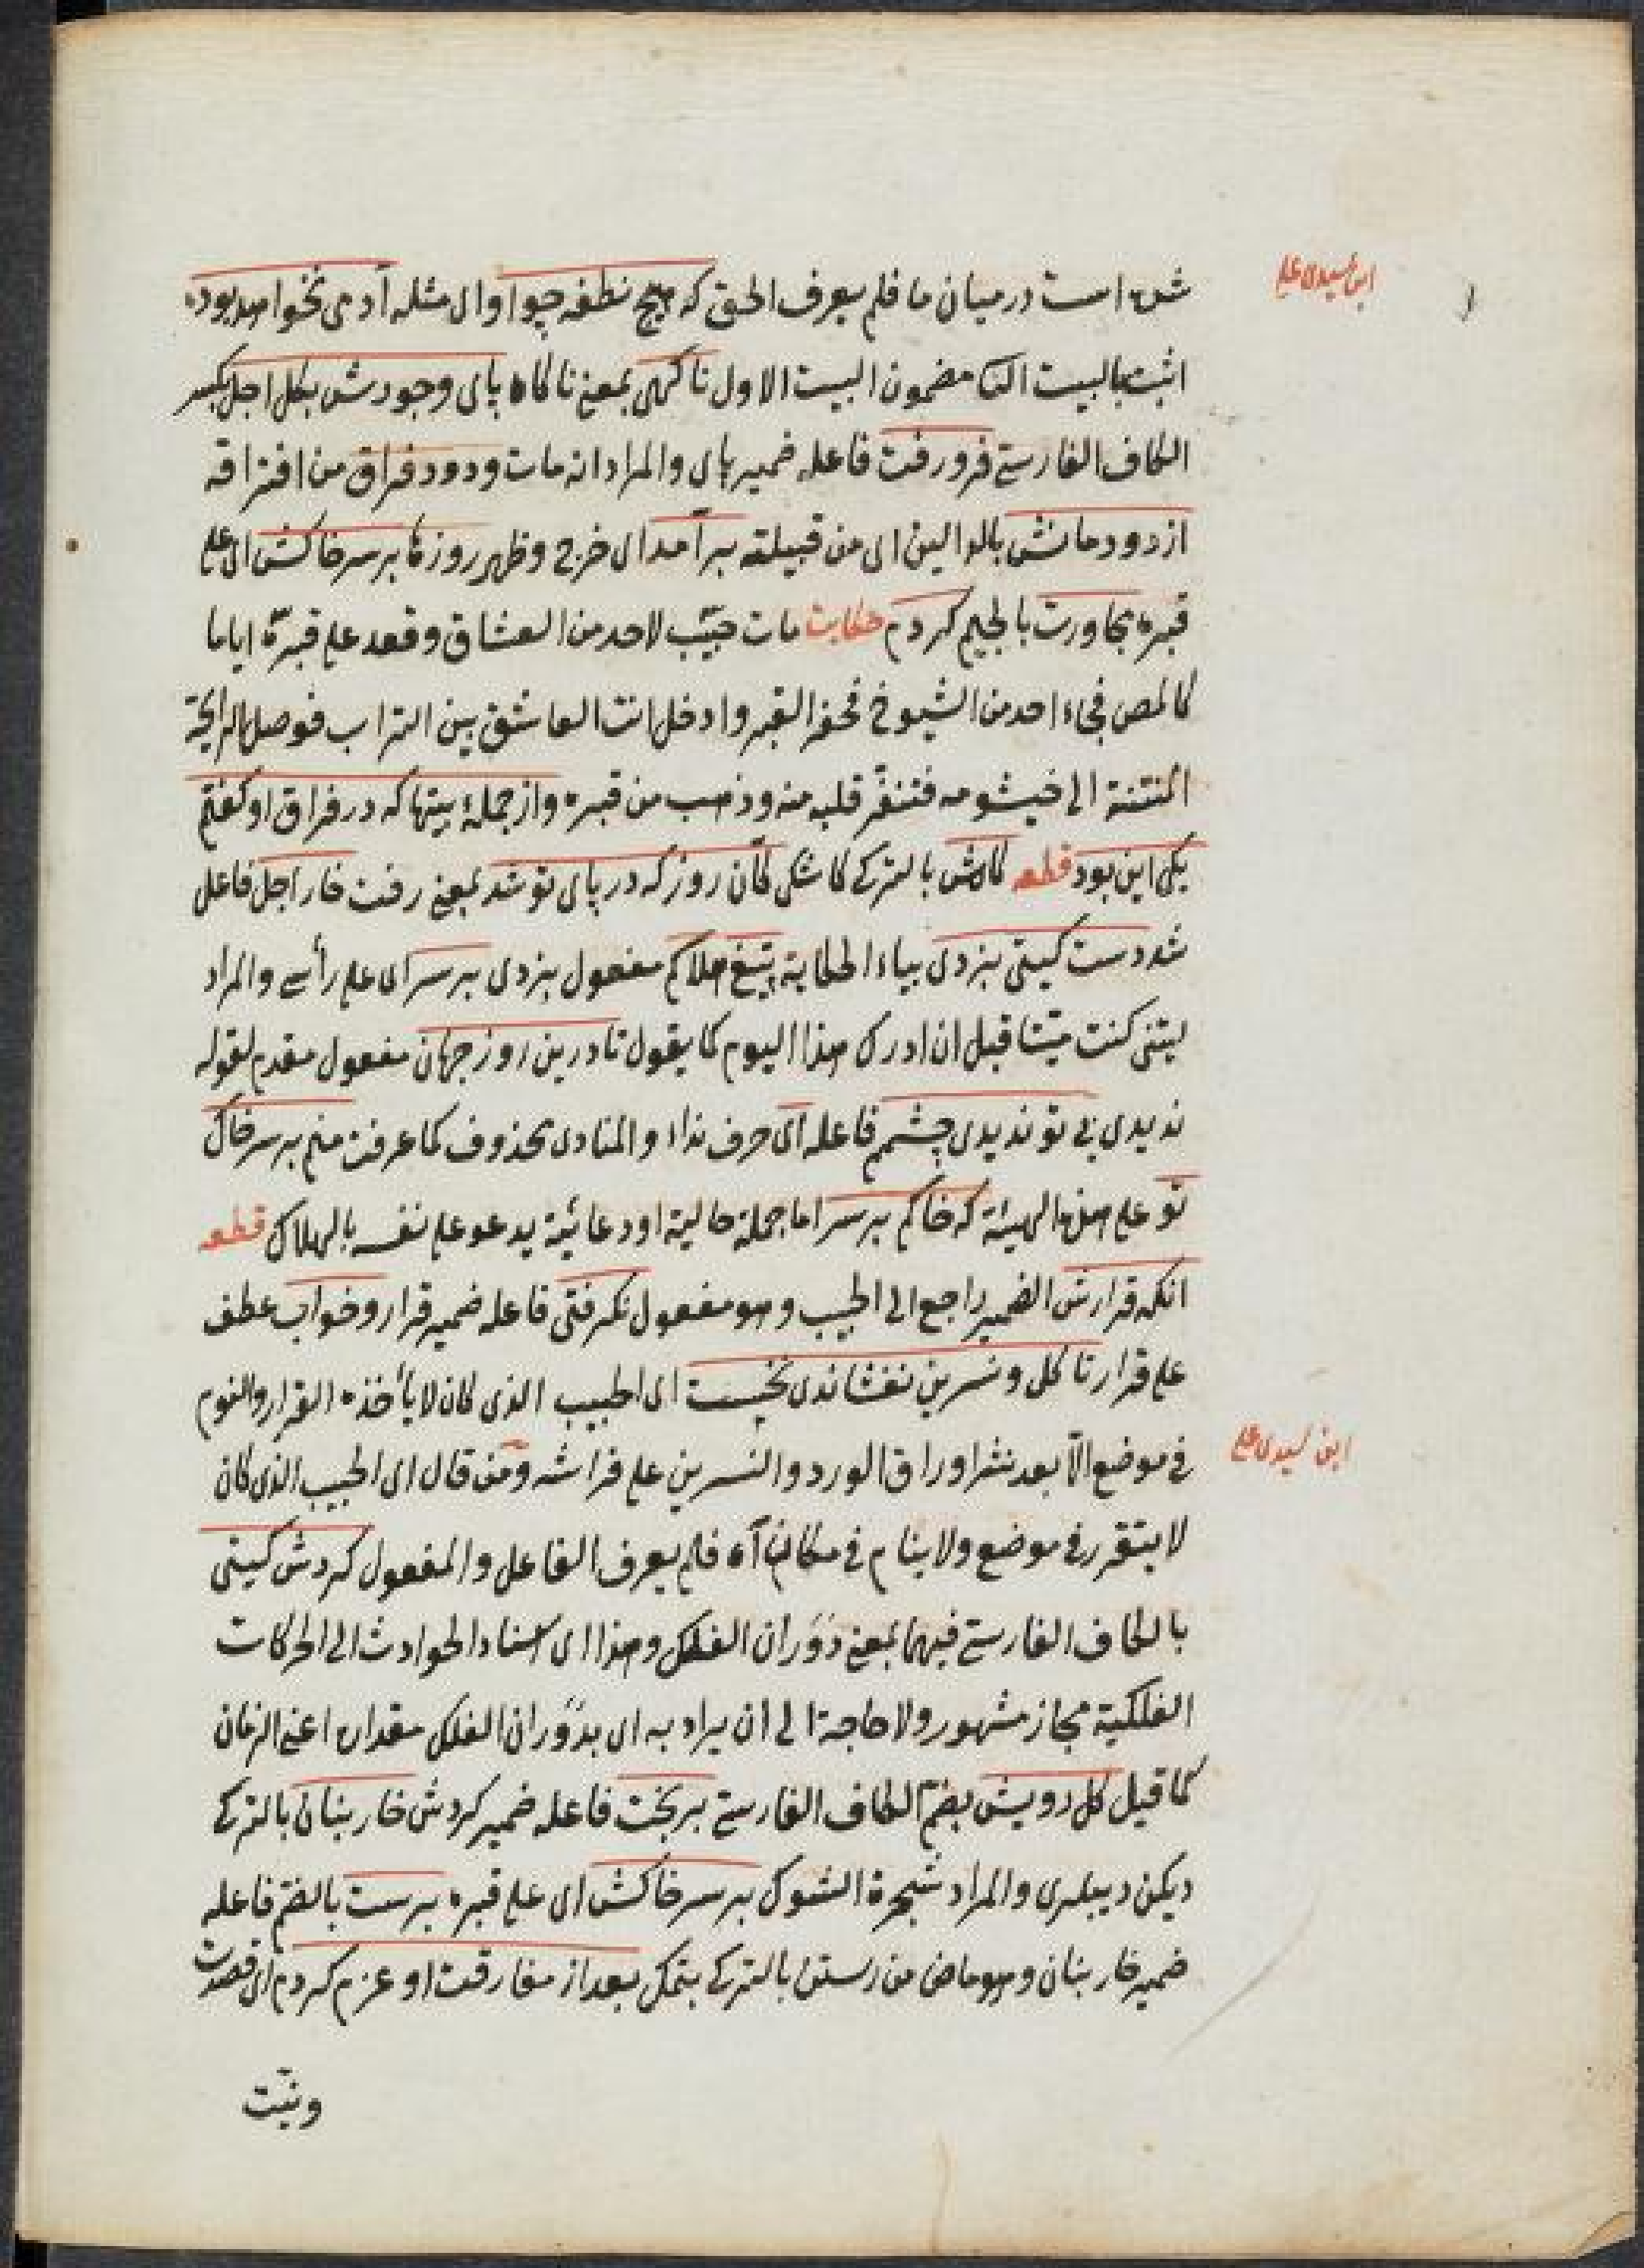 ابن سیدی علی
شده است در میان ما فلم یعرف الحق که هیچ نطفه چو او ای مثله آدمی نخواهد بود
اثبت بالبیت الثانی مضمون البیت الاول ناکهی بمعنی ناکاه پای وجودش بکل اجل بکسر
الکاف الفارسی فرو رفت فاعله ضمیر پای والمراد انه مات ودود فراق من افتراقه
از دودمانش بالدالین ای من قبیلته برآمد ای خرج وظهر روزها بر سر خاکش ای علی
قبره مجاورت بالجیم کردم حکایت مات حبیب لاحد من العشاق وقعد علی قبره ایاما
فجاء احد من الشیوخ فحفر القبر وادخل انف العاشق بین التراب فوصل الرایحة
المنتنة الی خیشومه فتنفر قلبه منه وذهب من قبره واز جملهٔ بیتها که در فراق او کفتم
یکی این بود قطعه کاش بالترکی کاشکی کان روز که در پای تو شد بمعنی رفت خار اجل فاعل
شد دست کیتی بزدی بیاء الحکایة تیغ هلاکم مفعول بزدی بر سر ای علی رأسی والمراد
لیتنی کنت میتا قبل ان ادرک هذا الیوم کما یقول تا درین روز جهان مفعول مقدم لقوله
ندیدی بی تو ندیدی چشمم فاعله ای حرف نداء والمنادی محذوف کما عرفت منم بر سر خاک
تو علی هذه الهیئة که خاکم بر سر اما جملة حالیة او دعائیة یدعو علی نفسه بالهلاک قطعه
انکه قرارش الضمیر راجع الی الحبیب وهو مفعول نکرفتی فاعله ضمیر قرار وخواب عطف
علی قرار تا کل ونسرین نفشاندی نخست ای الحبیب الذی کان لا یأخذه القرار والنوم
فی موضع الا بعد نثر اوراق الورد والنسرین علی فراشه ومن قال ای الحبیب الذی کان
ابن سیدی علی
لا یتقرر فی موضع ولا ینام فی مکان آه فلم یعرف الفاعل والمفعول کردش کیتی
بالکاف الفارسی فیهما بمعنی دوران الفلک وهذا ای اسناد الحوادث الی الحرکات
الفلکیة مجاز مشهور ولا حاجة الی ان یراد به ای بدوران الفلک مقداره اعنی الزمان
کما قیل کل رویش بضم الکاف الفارسی بریخت فاعله ضمیر کردش خار بنان بالترکی
دیکن دیبلری والمراد شجرة الشوک بر سر خاکش ای علی قبره برست بالضم فاعله
ضمیر خار بنان وهو ماض من رستن بالترکی بتمک بعد از مفارقت او عزم کردم ای قصدت
ونیت